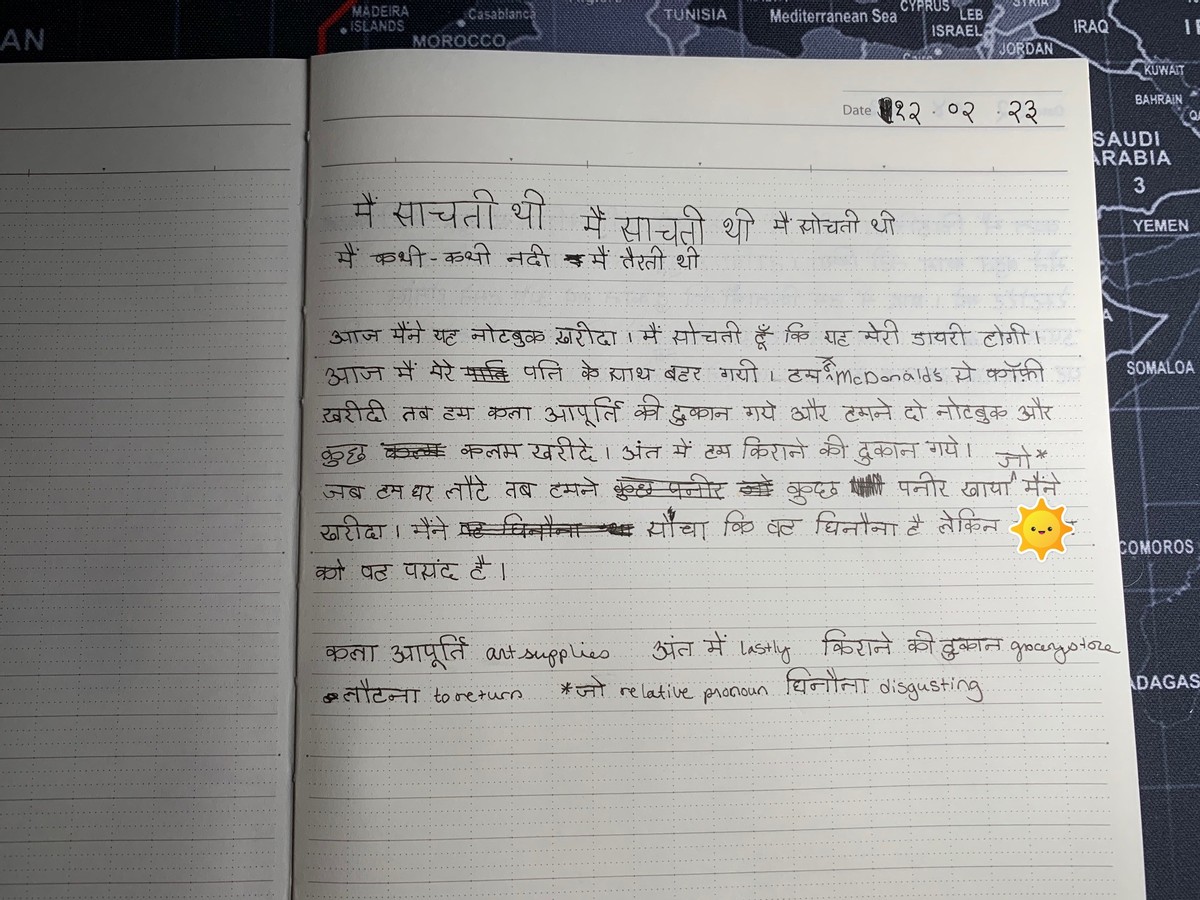 MADEIRA ISLANDS
Casablanca
MOROCCO
TUNISIA
Mediterranean Sea
CYPRUS
SYRIA
LEB
ISRAEL
JORDAN
IRAQ
KUWAIT
BAHRAIN
SAUDI
ARABIA
3
YEMEN
SOMALOA
COMOROS
ADAGAS
Date १२ . ०२ . २३
मैं साचती थी मैं साचती थी मैं सोचती थी
मैं कभी-कभी नदी में तैरती थी
आज मैंने यह नोटबुक ख़रीदा । मैं सोचती हूँ कि यह मेरी डायरी होगी ।
आज मैं मेरे पति के साथ बहर गयी । हम McDonalds से कॉफ़ी
ख़रीदी तब हम कला आपूर्ति की दुकान गये और हमने दो नोटबुक और
कुछ कलम खरीदे । अंत में हम किराने की दुकान गये ।
जब हम घर लौटे तब हमने कुछ पनीर खाया जो* मैंने
खरीदा । मैंने सोचा कि वह घिनौना है लेकिन
को वह पसंद है ।
कला आपूर्ति art supplies अंत में lastly किराने की दुकान grocery store
लौटना to return *जो relative pronoun घिनौना disgusting